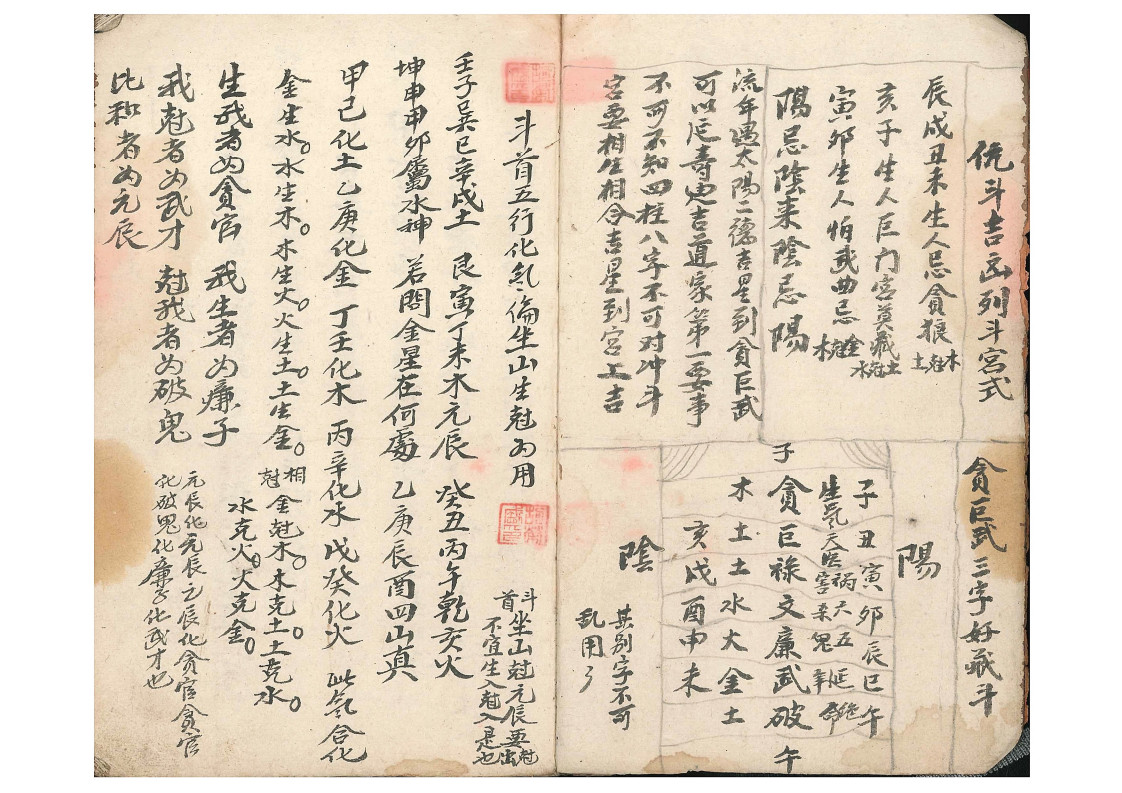 侊斗吉凶列斗宮式
貪巨武三字好藏斗
辰戌丑未生人忌貪狼 木尅土
亥子生人巨门宮莫藏 土尅水
寅卯生人怕武曲忌 金尅木
陽忌陰来陰忌陽
流年遇太陽二德吉星到貪巨武
可以延寿迪吉道家第一要事
不可不知四柱八字不可对冲斗
宮要相生相合吉星到宮上吉
陽
子丑寅卯辰巳午
生氣天医祸害六杀五鬼延年绝命
子
貪巨祿文廉武破
午
木土土水火金土
亥戌酉申未
陰
其别字不可
乱用了
斗首五行化氣倫坐山生尅为用
斗首坐山尅元辰要尅出
不宜生入尅入是也
壬子巽巳辛戌土 艮寅丁未木元辰 癸丑丙午乾亥火
坤申甲卯屬水神 若問金星在何處 乙庚辰酉四山真
甲己化土乙庚化金丁壬化木丙辛化水戊癸化火 此氣合化
金生水。水生木。木生火。火生土。土生金。
相尅 金尅木。木克土。土克水。
水克火。火克金。
生我者为貪官 我生者为廉子
我尅者为武才 尅我者为破鬼
比和者为元辰
元辰化元辰元辰化貪官貪官
化破鬼化廉子化武才也